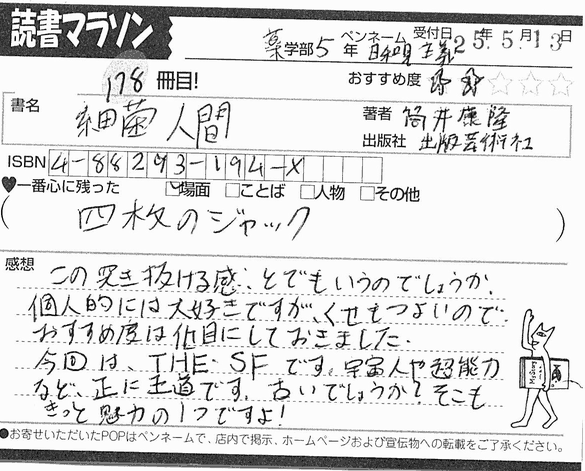 読書マラソン
薬学部5年 ペンネーム 自己中心主義 受付日 25年5月13日
178冊目! おすすめ度 ★★☆☆☆
書名 細菌人間
著者 筒井康隆
出版社 出版芸術社
ISBN 4-88293-194-X
♥一番心に残った ☑場面 □ことば □人物 □その他
(四枚のジャック)
感想
この突き抜ける感、とでもいうのでしょうか。
個人的には大好きですが、くせもつよいので、
おすすめ度は低目にしておきました。
今回は、THE・SFです。宇宙人や超能力
など、正に王道です。古いでしょうか?そこも
きっと魅力の1つですよ!
●お寄せいただいたPOPはペンネームで、店内で掲示、ホームページおよび宣伝物への転載をご了承ください。